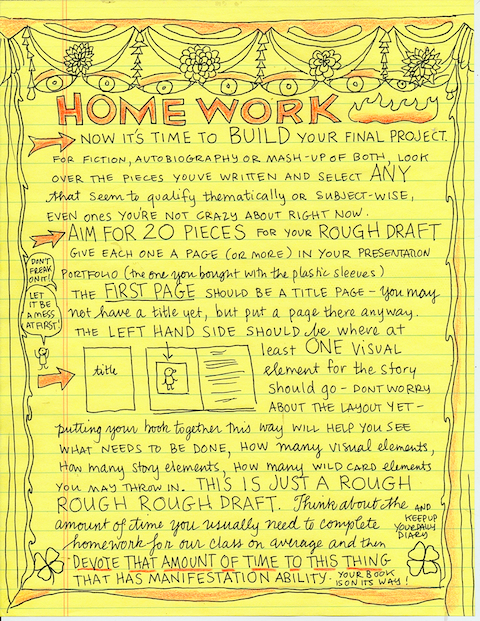 HOME WORK
NOW IT'S TIME TO BUILD YOUR FINAL PROJECT.
FOR FICTION, AUTOBIOGRAPHY OR MASH-UP OF BOTH, LOOK
OVER THE PIECES YOU'VE WRITTEN AND SELECT ANY
that seem to qualify thematically or SUBJECT-WISE,
EVEN ONES YOU'RE NOT CRAZY ABOUT RIGHT NOW.
AIM FOR 20 PIECES FOR YOUR ROUGH DRAFT
GIVE EACH ONE A PAGE (OR MORE) IN YOUR PRESENTATION
PORTFOLIO (the one you bought with the plastic sleeves)
DON'T
FREAK
ON IT!
LET
IT BE
A MESS
AT FIRST!
THE FIRST PAGE SHOULD BE A TITLE PAGE - you may
not have a title yet, but put a page there anyway.
THE LEFT HAND SIDE SHOULD be where at
title
least ONE VISUAL
element for the story
should go - DONT WORRY
ABOUT THE LAYOUT YET -
putting your book together this way WILL HELP YOU SEE
WHAT NEEDS TO BE DONE, HOW many VISUAL elements,
How many STORY elements, HOW many WILD CARD elements
YOU MAY THROW IN. THIS IS JUST A ROUGH
ROUGH ROUGH DRAFT. Think about the
amount of time you usually need to complete
homework for our class on average and then
DEVOTE THAT AMOUNT OF TIME TO THIS THING
THAT HAS MANIFESTATION ABILITY.
AND
KEEP UP
YOUR DAILY
DIARY
YOUR BOOK
IS ON ITS WAY!